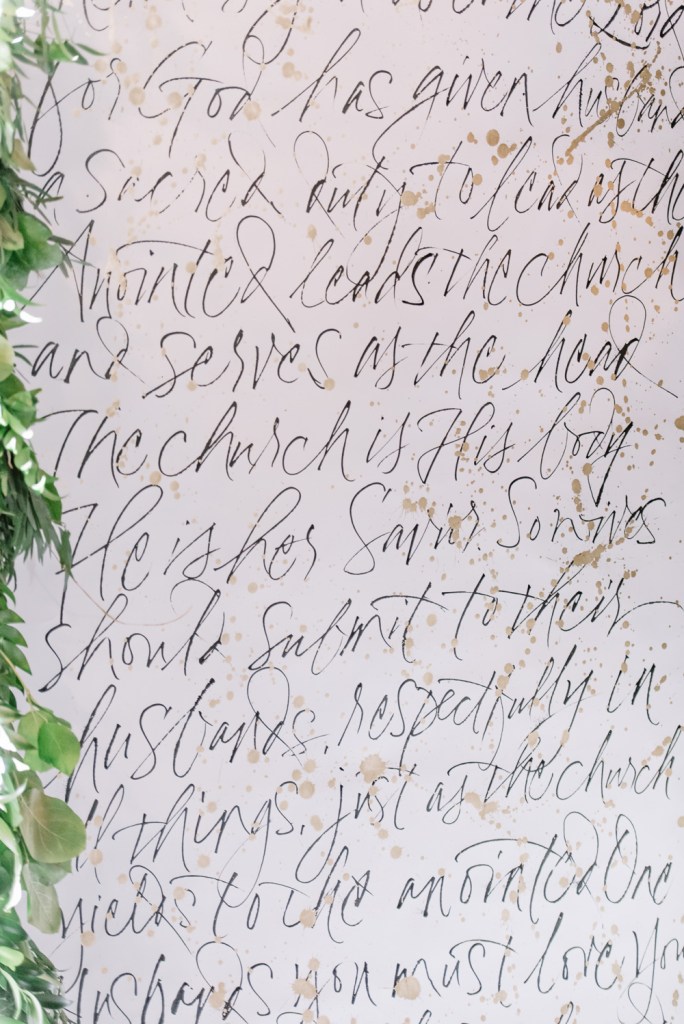 Lord
for God has given husband
a sacred duty to lead as the
Anointed leads the church
and serves as the head
The church is His body
He is her Savior. So wives
should submit to their
husbands, respectfully in
all things, just as the church
yields to the anointed One
Husbands you must love you